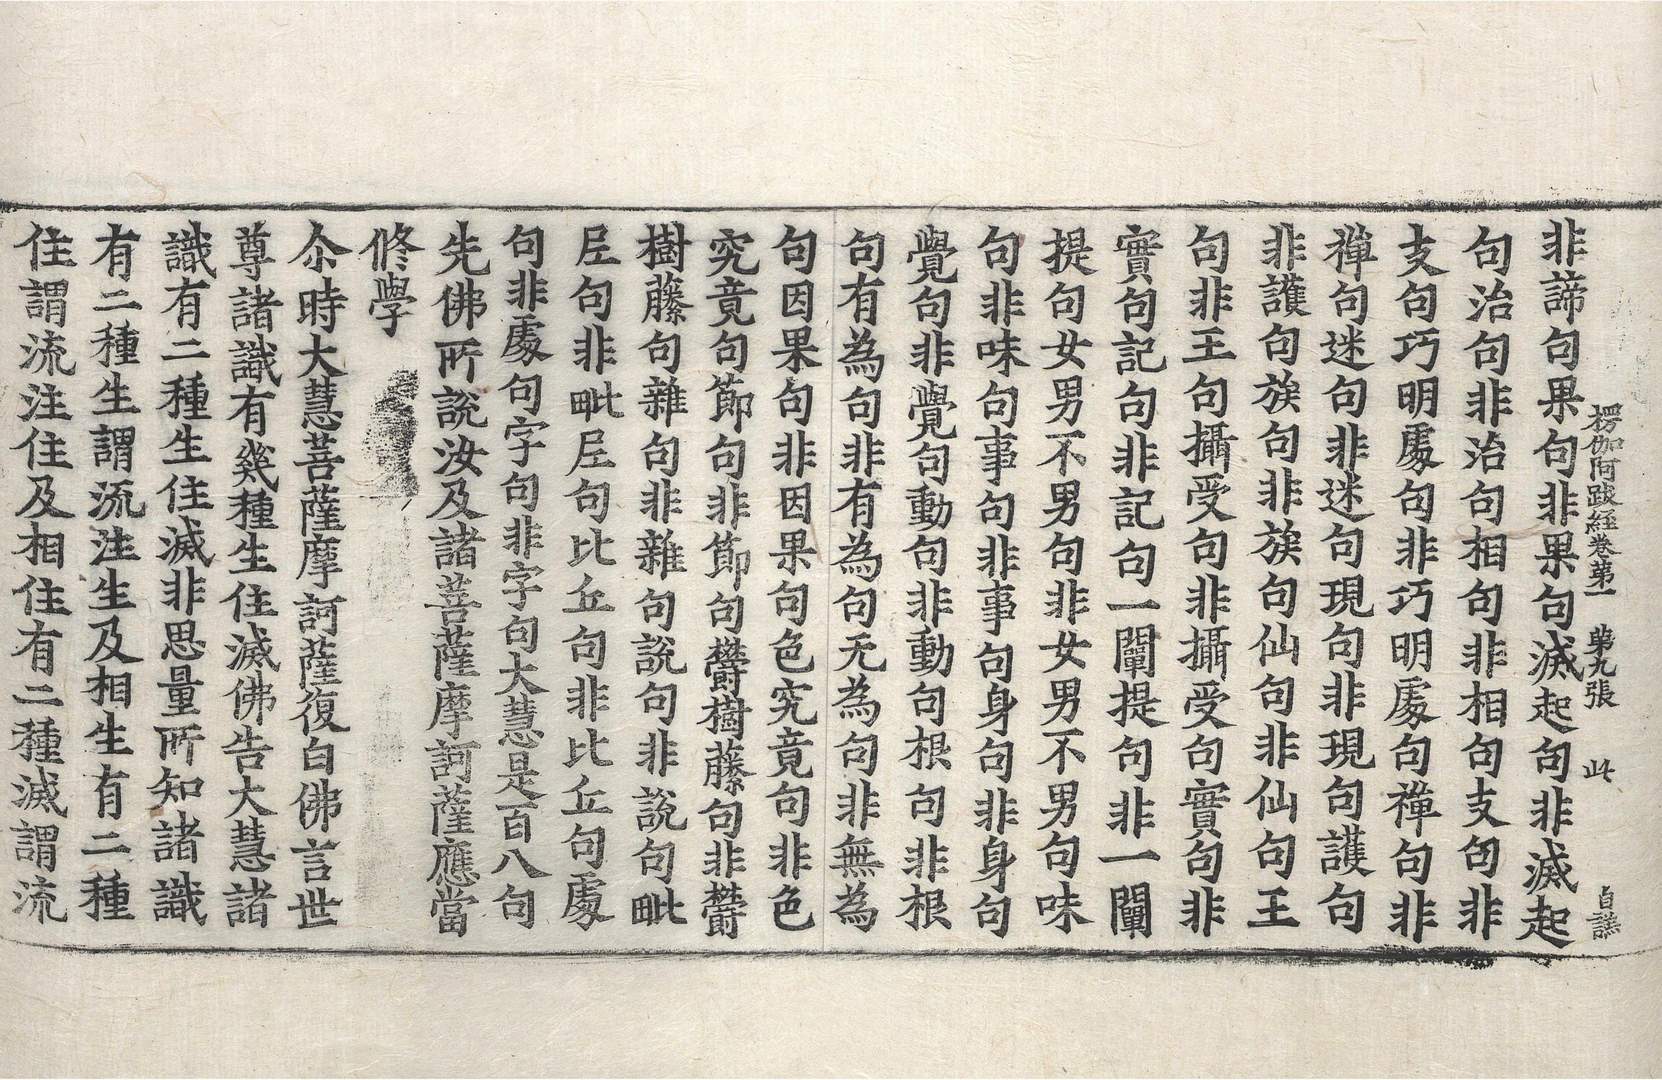 楞伽阿跋經卷第一 第九張 此
非諦句果句非果句滅起句非滅起
句治句非治句相句非相句支句非
支句巧明處句非巧明處句禪句非
禪句迷句非迷句現句非現句護句
非護句族句非族句仙句非仙句王
句非王句攝受句非攝受句實句非
實句記句非記句一闡提句非一闡
提句女男不男句非女男不男句味
句非味句事句非事句身句非身句
覺句非覺句動句非動句根句非根
句有為句非有為句无為句非無為
句因果句非因果句色究竟句非色
究竟句節句非節句欝樹藤句非欝
樹藤句雜句非雜句說句非說句毗
尼句非毗尼句比丘句非比丘句處
句非處句字句非字句大慧是百八句
先佛所說汝及諸菩薩摩訶薩應當
修學
尒時大慧菩薩摩訶薩復白佛言世
尊諸識有幾種生住滅佛告大慧諸
識有二種生住滅非思量所知諸識
有二種生謂流注生及相生有二種
住謂流注住及相住有二種滅謂流